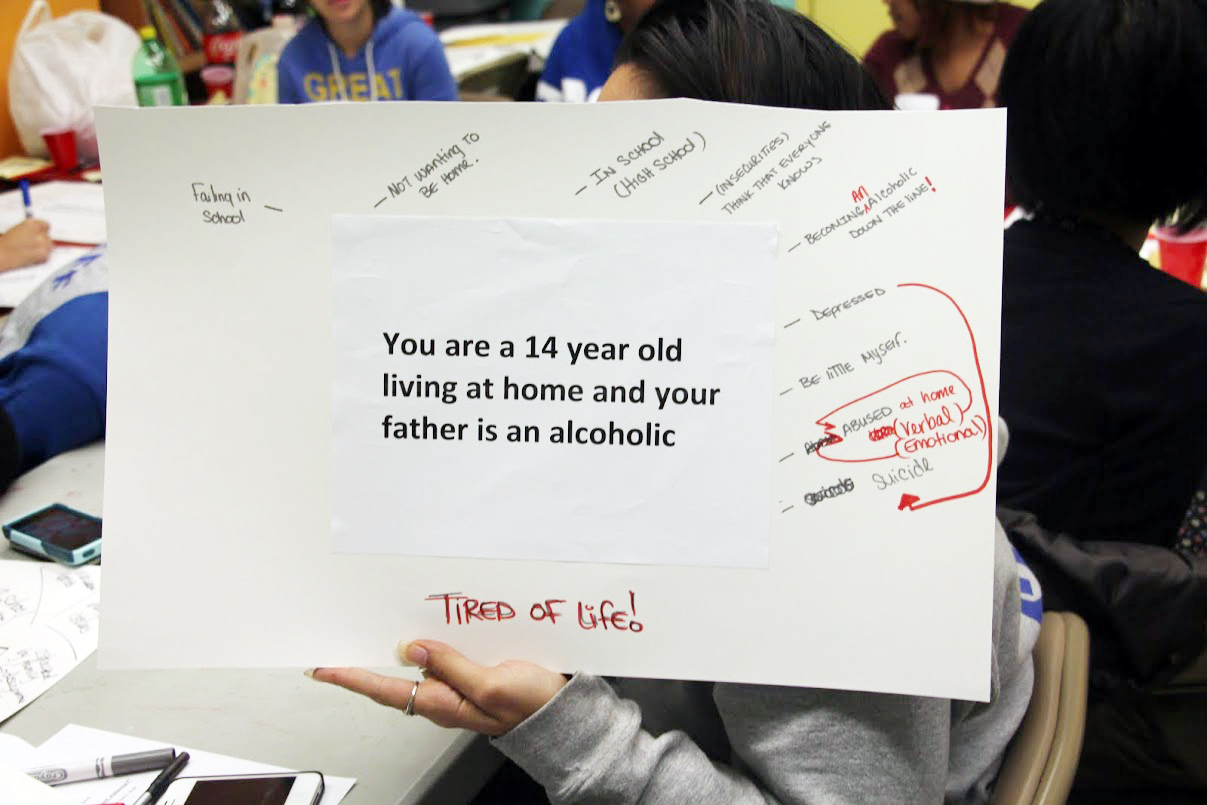 GREAT
Coca-Cola
Failing in
School –
– NOT WANTING TO
BE HOME.
– IN SCHOOL
(HIGH SCHOOL)
– (INSECURITIES)
THINK THAT EVERYONE
KNOWS
– BECOMING AN Alcoholic
DOWN THE LINE!
– DEPRESSED
– BE little MYSELF.
– ABUSED at home
(Verbal)
(EMOTIONAL)
– Suicide
You are a 14 year old
living at home and your
father is an alcoholic
TIRED OF LIFE!